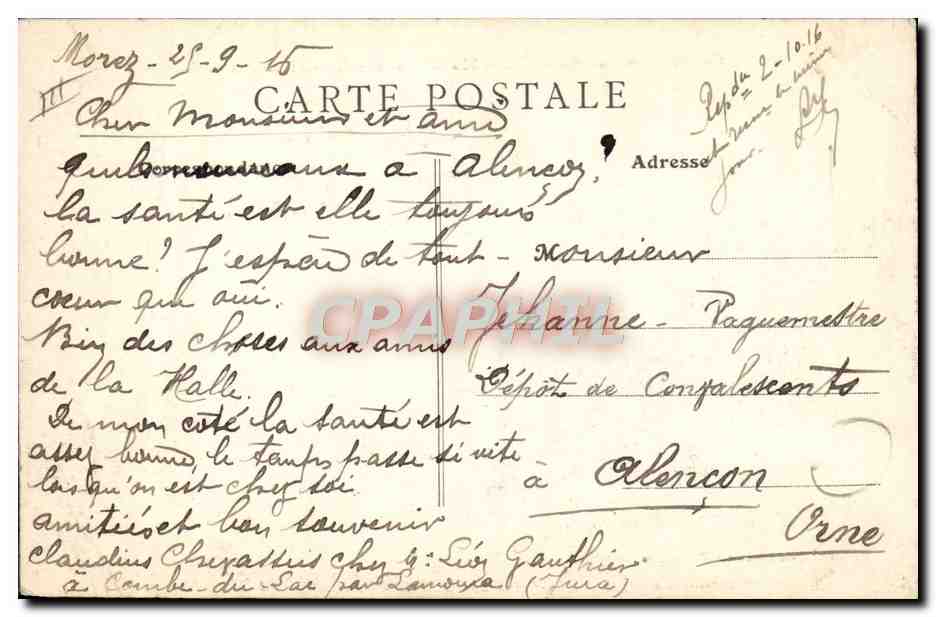 Morez - 25-9-16
III
CARTE POSTALE
Cher Monsieur et ami
quels nouveaux a Alençon ?
la santé est elle toujours
bonne ? J'espère de tout
coeur que oui.
Bien des choses aux amis
de la Halle.
De mon coté la santé est
assez bonne, le temps passe si vite
lorsqu'on est chez soi.
amitiés et bon souvenir
Claudius Chevassus chez Mr Léon Gauthier
à Combe-du-Lac par Lamoura (Jura)
Rep du 2-10-16
jour.
Adresse
Monsieur
Jehanne - Vaguemestre
Dépôt de Convalescents
à Alençon
Orne
CPAPHIL